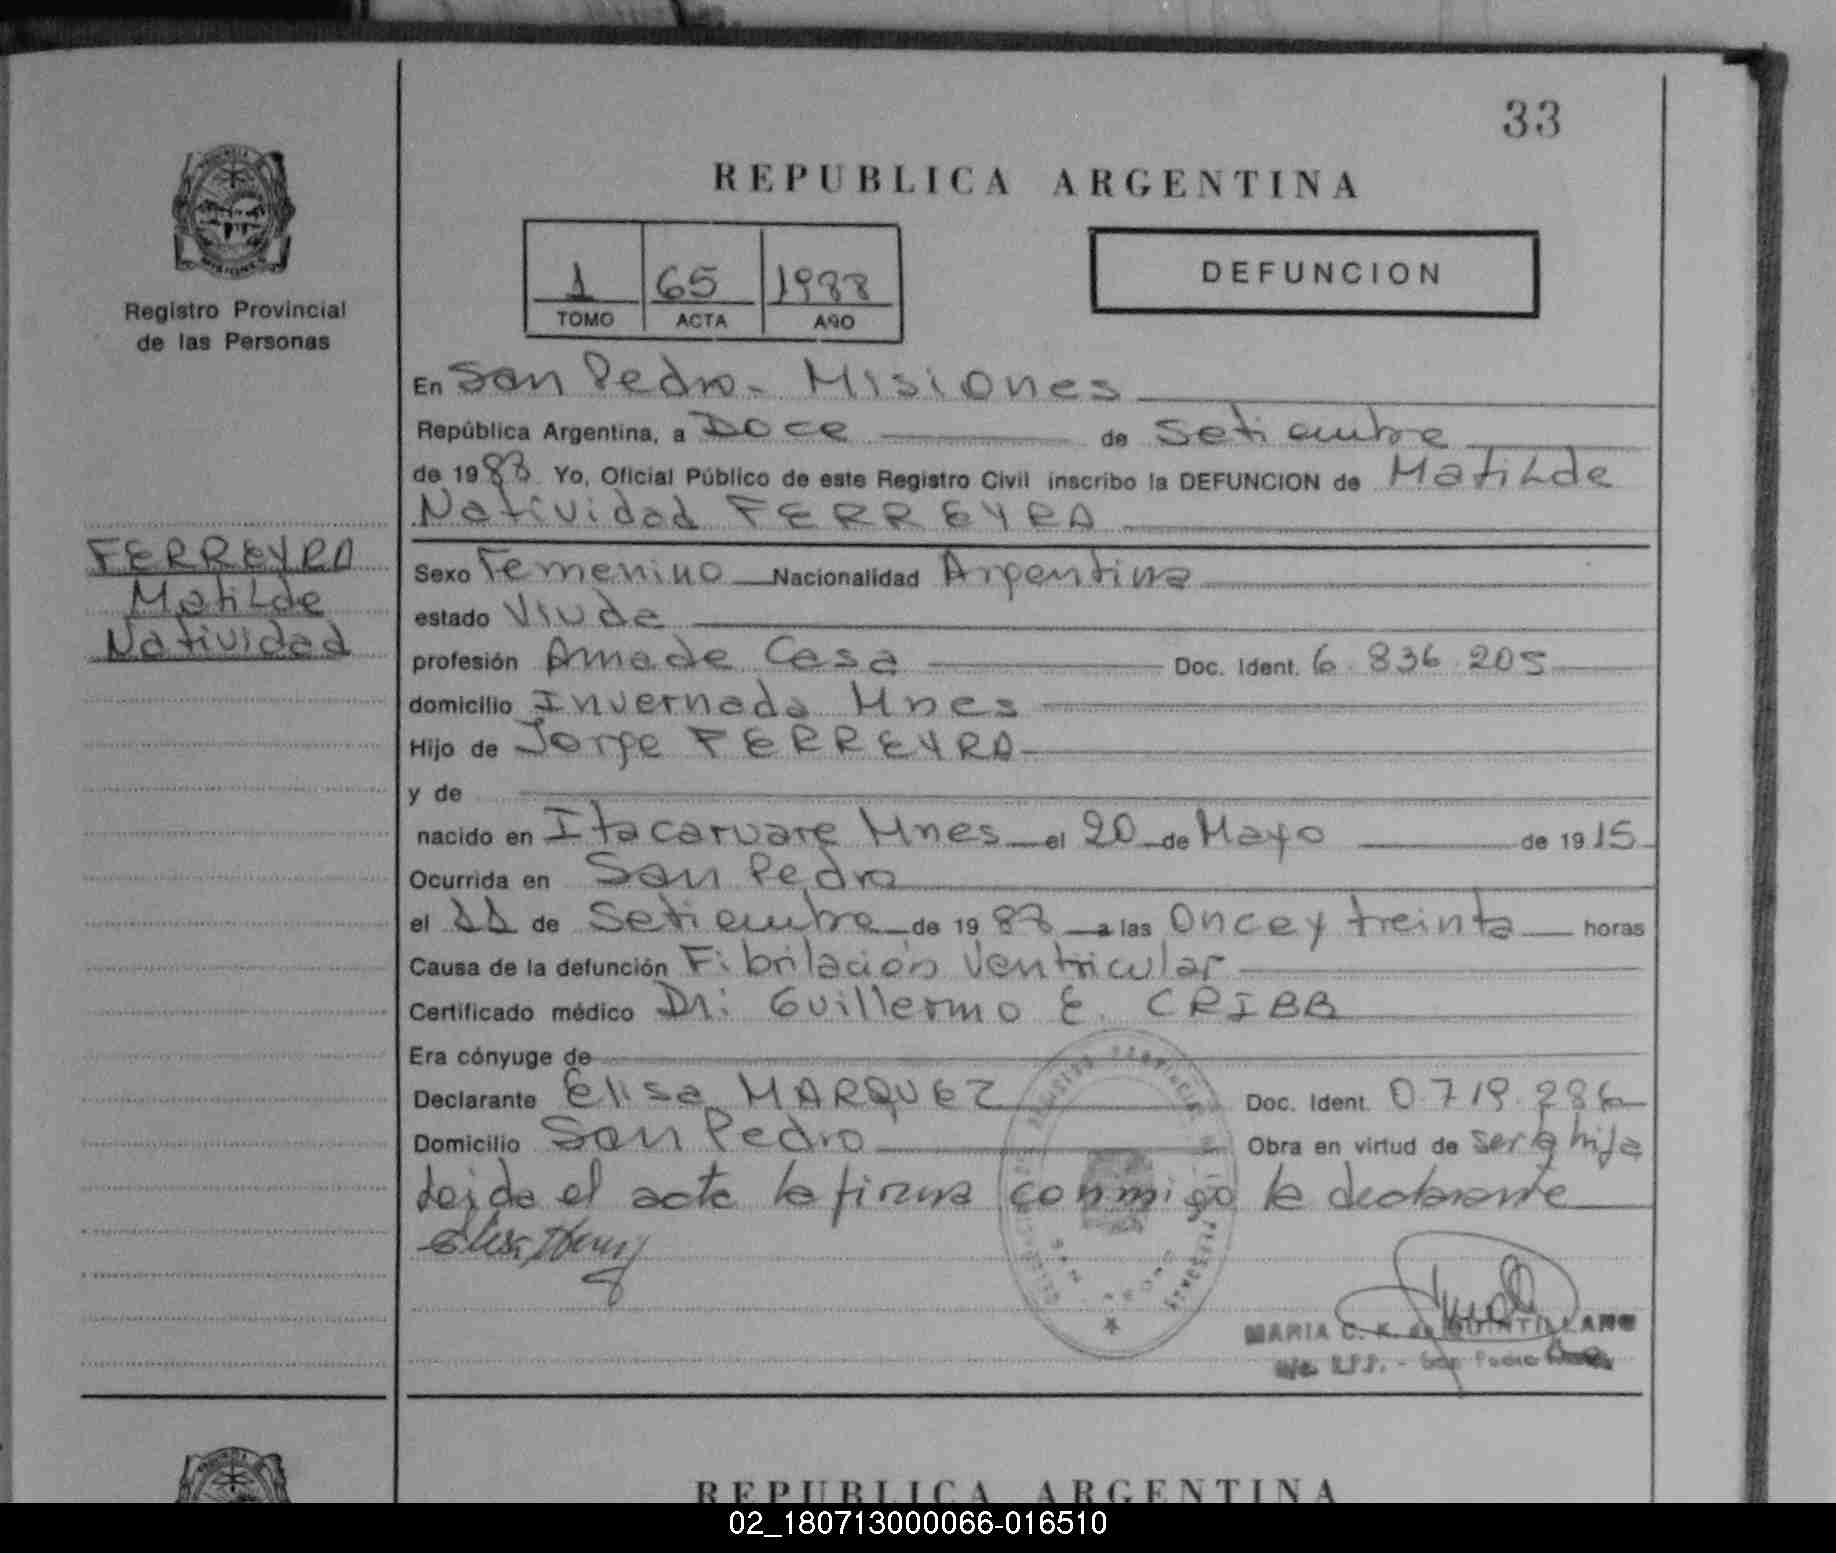 33
REPUBLICA ARGENTINA
Registro Provincial
de las Personas
1 65 1988
TOMO ACTA AÑO
DEFUNCION
En San Pedro - Misiones
República Argentina, a Doce de Setiembre
de 1988 Yo, Oficial Público de este Registro Civil inscribo la DEFUNCION de Matilde
Natividad FERREYRA
FERREYRA
Matilde
Natividad
Sexo Femenino Nacionalidad Argentina
estado Viuda
profesión Ama de Casa Doc. Ident. 6.836.205
domicilio Invernada Mnes
Hijo de Jorge FERREYRA
y de
nacido en Itacaruare Mnes el 20 de Mayo de 1915
Ocurrida en San Pedro
el 11 de Setiembre de 1988 a las Once y treinta horas
Causa de la defunción Fibrilación Ventricular
Certificado médico Dr: Guillermo E. CRIBB
Era cónyuge de
Declarante Elisa MARQUEZ Doc. Ident. 0.719.286
Domicilio San Pedro Obra en virtud de ser la hija
leida el acta la firma conmigo la declarante
MARIA C. K. de QUINTILLANO
R.P.P. - San Pedro
REPUBLICA ARGENTINA
02_180713000066-016510